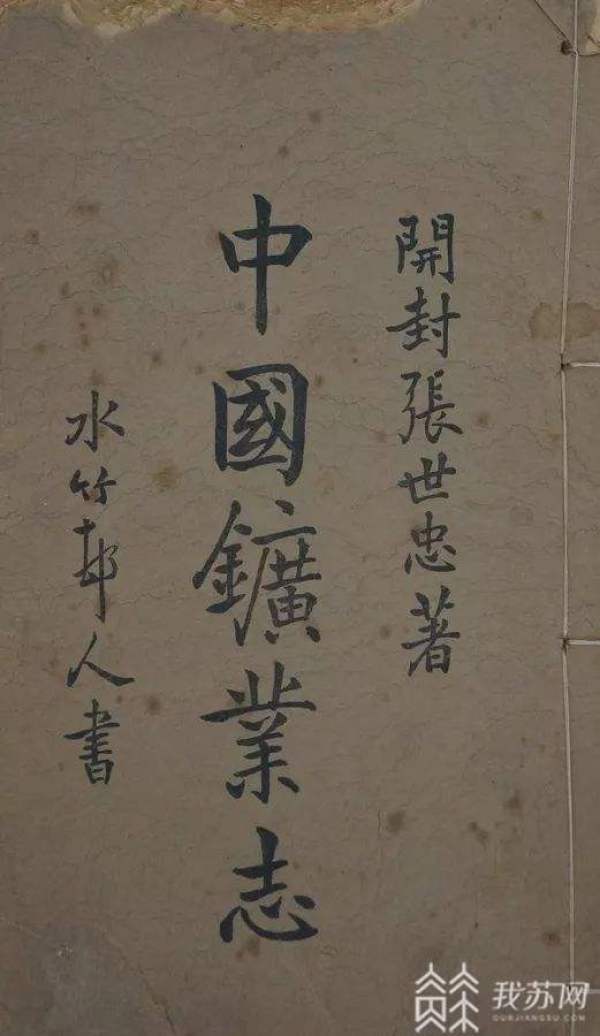 開封張世忠著
中國鑛業志
水竹邨人書
我苏网
OURJIANGSU.COM